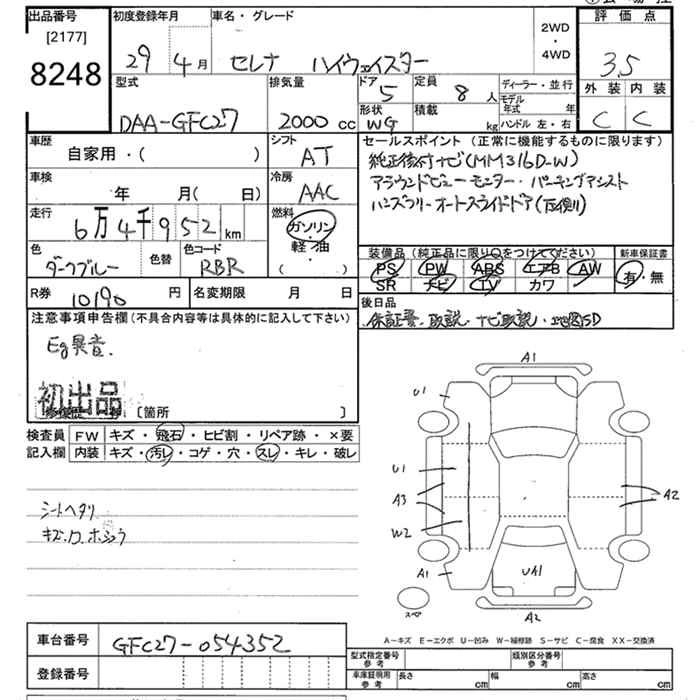 出品番号 初度登録年月 車名・グレード 2WD・4WD 評価点
[2177]
8248
29年 4月 セレナ ハイウェイスター 3.5
型式 排気量 ドア 5 定員 8人 ディーラー・並行 外装 内装
DAA-GFC27 2000cc 形状 WG 積載 kg モデル年式 年 C C
ハンドル 左・右
車歴 シフト セールスポイント (正常に機能するものに限ります)
自家用・( ) AT 純正後付ナビ(MM316D-W)
車検 冷房 アラウンドビューモニター・パーキングアシスト
年 月( 日) AAC ハンズフリーオートスライドドア(左側)
走行 燃料
6万4千952km ガソリン・軽油・( )
色 色替 色コード 装備品 (純正品に限り○をつけてください) 新車保証書
ダークブルー RBR PS PW ABS エアB AW 有・無
SR ナビ TV カワ
R券 10190円 名変期限 月 日 後日品
注意事項申告欄(不具合内容等は具体的に記入して下さい) 保証書、取説・ナビ取説・地図SD
Eg異音.
初出品
修復歴 [箇所 ]
検査員 FW キズ・飛石・ヒビ割・リペア跡・×要
記入欄 内装 キズ・汚レ・コゲ・穴・スレ・キレ・破レ
シートヘタリ
A1
U1
U1
A3
W2
A2
A1
UA1
スペア
A2
A-キズ E-エクボ U-凹み W-補修跡 S-サビ C-腐食 XX-交換済
車台番号 GFC27-054352
登録番号
型式指定番号 参考 類別区分番号 参考
車庫証明用 参考 長さ cm 幅 cm 高さ cm